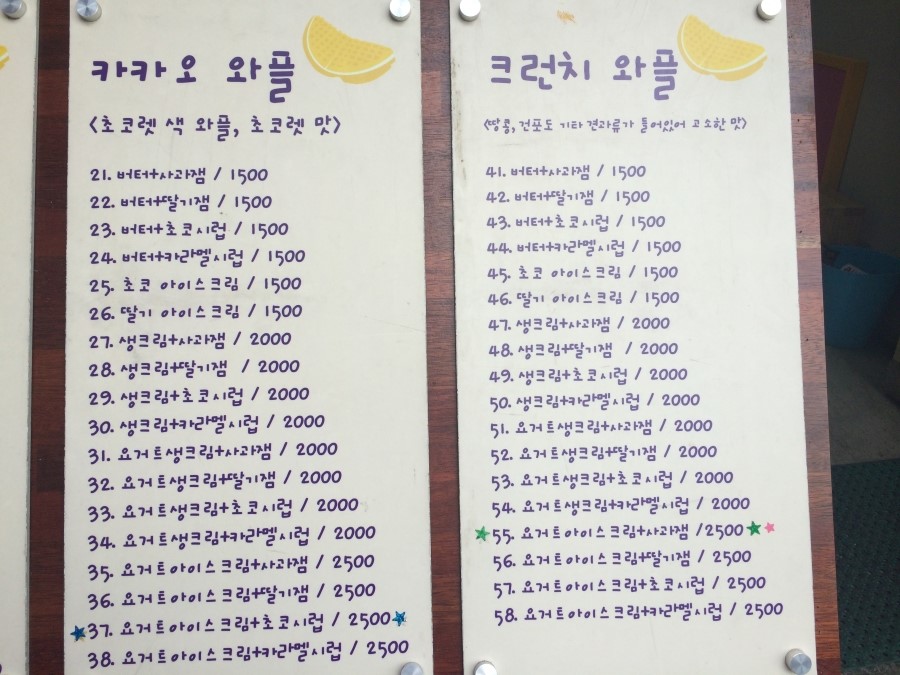 카카오 와플
<초코렛 색 와플, 초코렛 맛>
21. 버터+사과잼 / 1500
22. 버터+딸기잼 / 1500
23. 버터+초코시럽 / 1500
24. 버터+카라멜시럽 / 1500
25. 초코 아이스크림 / 1500
26. 딸기 아이스크림 / 1500
27. 생크림+사과잼 / 2000
28. 생크림+딸기잼 / 2000
29. 생크림+초코시럽 / 2000
30. 생크림+카라멜시럽 / 2000
31. 요거트생크림+사과잼 / 2000
32. 요거트생크림+딸기잼 / 2000
33. 요거트생크림+초코시럽 / 2000
34. 요거트생크림+카라멜시럽 / 2000
35. 요거트아이스크림+사과잼 / 2500
36. 요거트아이스크림+딸기잼 / 2500
37. 요거트아이스크림+초코시럽 / 2500
38. 요거트아이스크림+카라멜시럽 / 2500
크런치 와플
<땅콩, 건포도 기타 견과류가 들어있어 고소한 맛>
41. 버터+사과잼 / 1500
42. 버터+딸기잼 / 1500
43. 버터+초코시럽 / 1500
44. 버터+카라멜시럽 / 1500
45. 초코 아이스크림 / 1500
46. 딸기 아이스크림 / 1500
47. 생크림+사과잼 / 2000
48. 생크림+딸기잼 / 2000
49. 생크림+초코시럽 / 2000
50. 생크림+카라멜시럽 / 2000
51. 요거트생크림+사과잼 / 2000
52. 요거트생크림+딸기잼 / 2000
53. 요거트생크림+초코시럽 / 2000
54. 요거트생크림+카라멜시럽 / 2000
55. 요거트아이스크림+사과잼 /2500
56. 요거트아이스크림+딸기잼 / 2500
57. 요거트아이스크림+초코시럽 / 2500
58. 요거트아이스크림+카라멜시럽 / 2500